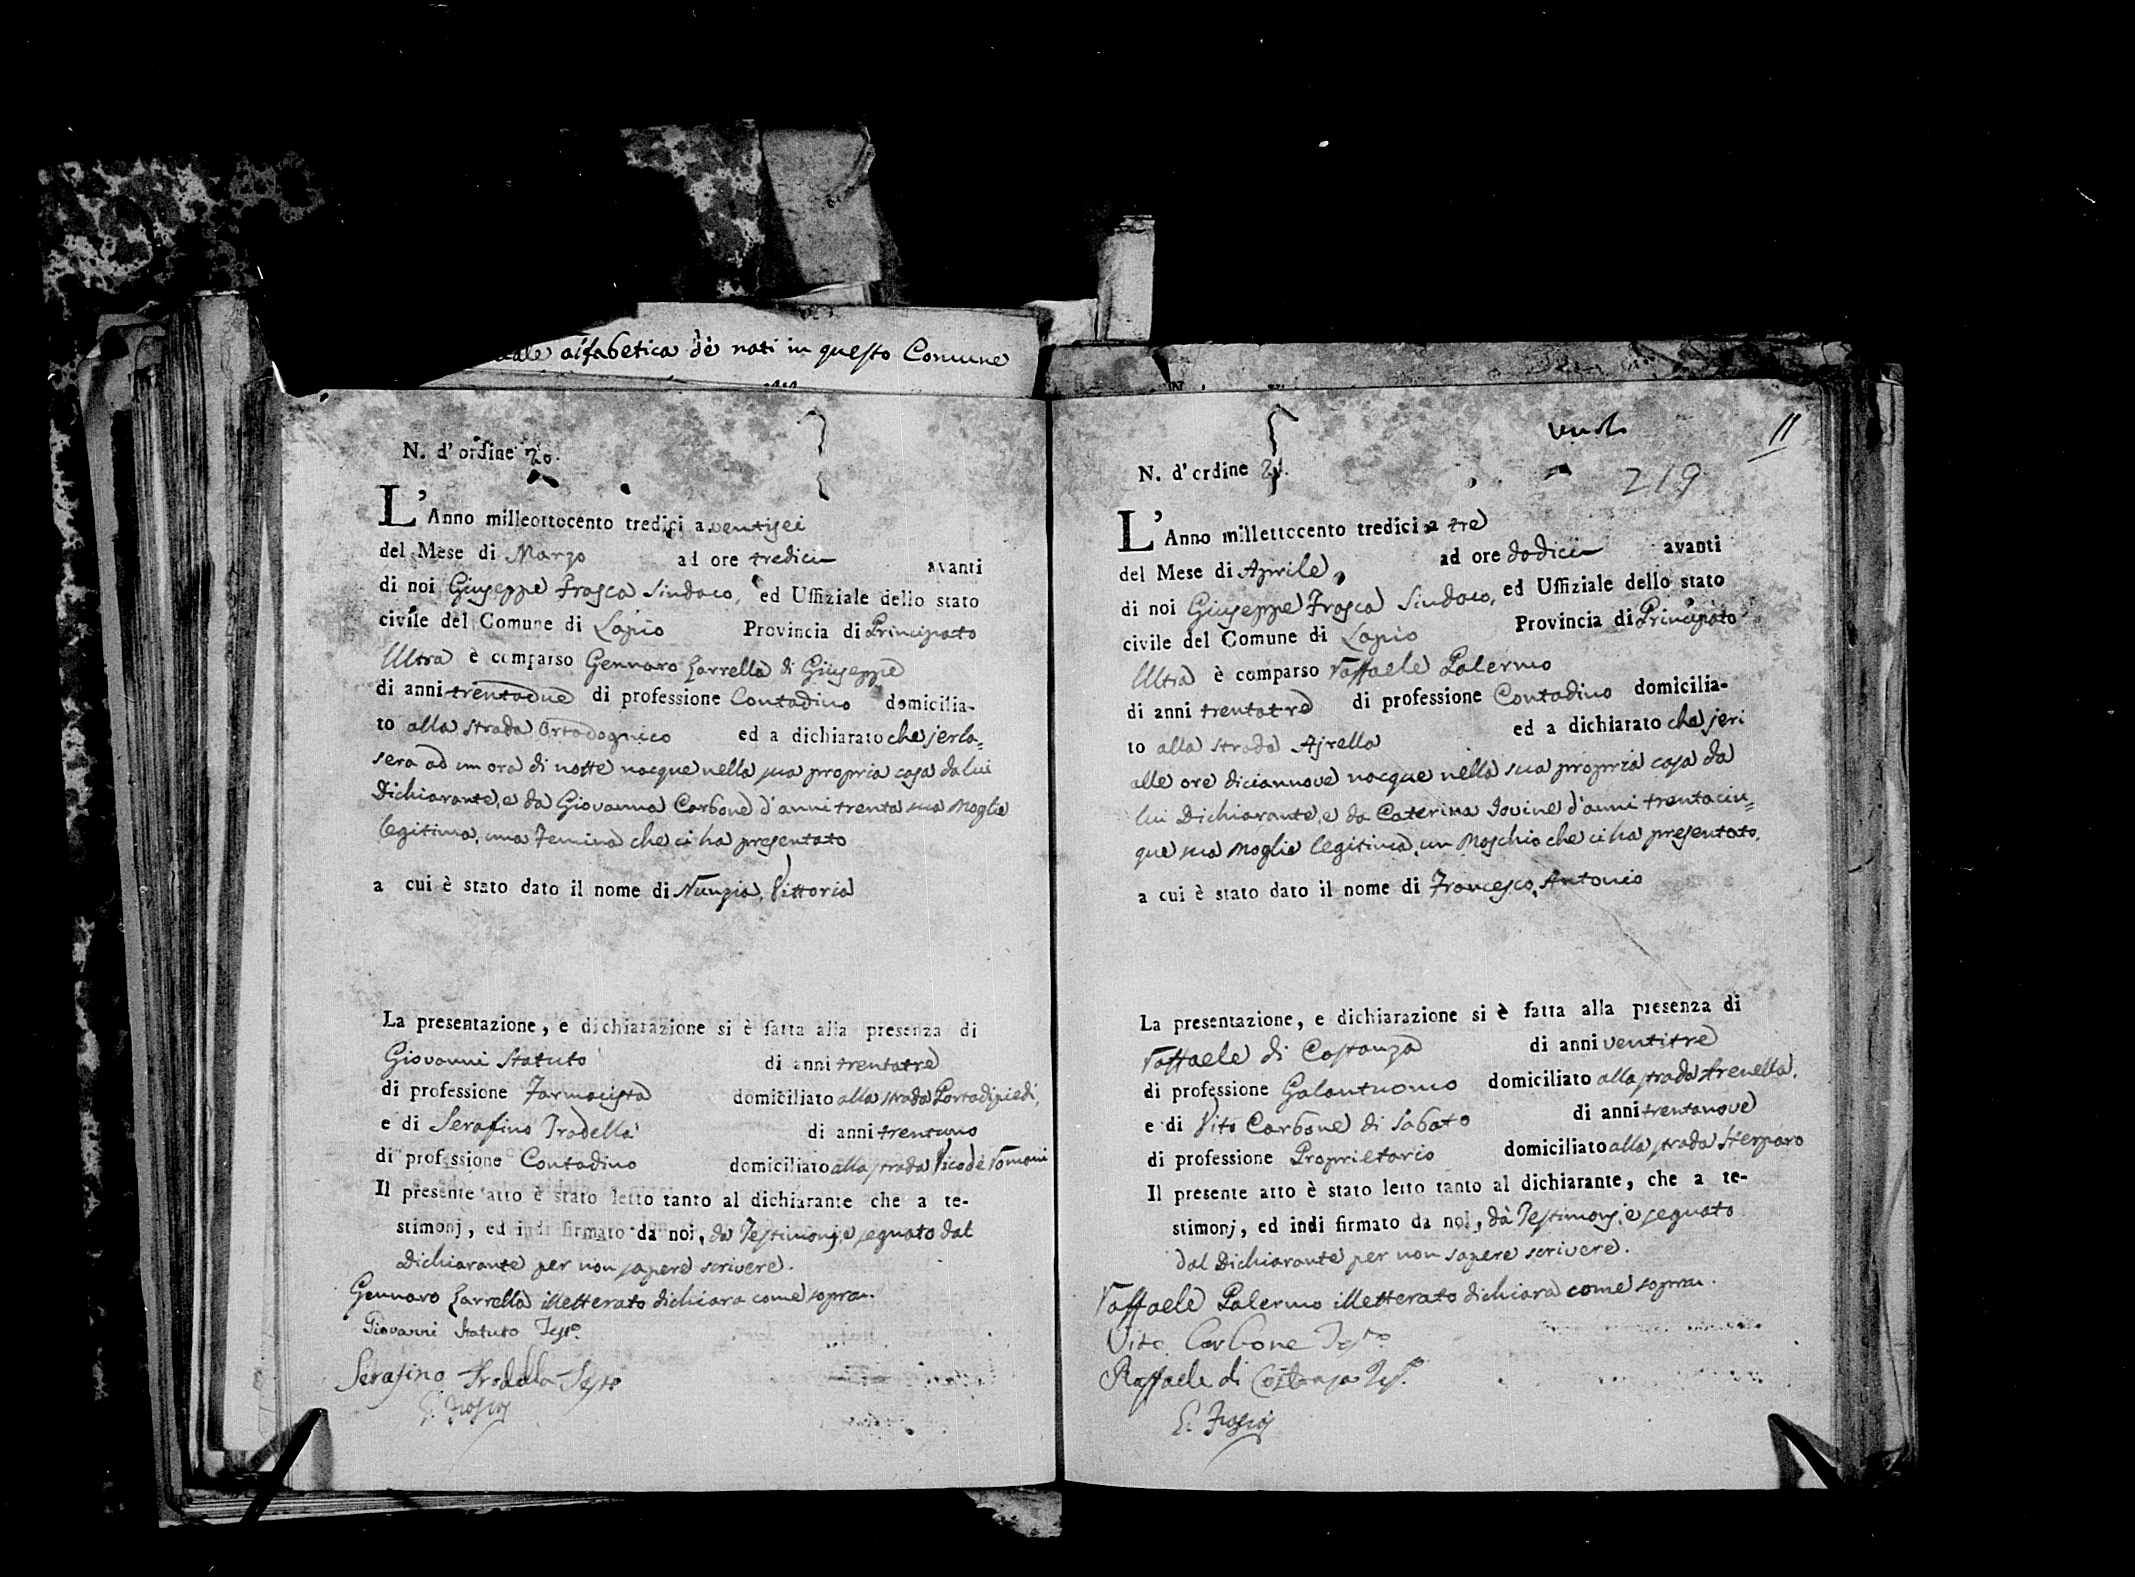 alfabetica de nati in questo Comune
N. d' ordine 20.
L'Anno milleottocento tredici a ventisei
del Mese di Marzo ad ore tredici avanti
di noi Giuseppe Frasca Sindaco, ed Uffiziale dello stato
civile del Comune di Lapio Provincia di Principato
Ultra è comparso Gennaro Zarrella di Giuseppe
di anni trentadue di professione Contadino domicilia-
to alla strada Ortodognico ed a dichiarato che jerla=
sera ad un ora di notte nacque nella sua propria casa da lui
Dichiarante, e da Giovanna Carbone d'anni trenta sua Moglie
legitima, una Femina che ci ha presentato
a cui è stato dato il nome di Nunzia, Vittoria
La presentazione, e dichiarazione si è fatta alla presenza di
Giovanni Statuto di anni trentatre
di professione Farmacista domiciliato alla strada Portadipiedi,
e di Serafino Tradella di anni trentuno
di professione Contadino domiciliato alla strada Vico de Romani
Il presente atto è stato letto tanto al dichiarante che a te-
stimonj, ed indi firmato da noi, da Testimonj, e segnato dal
Dichiarante per non sapere scrivere.
Gennaro Zarrella illetterato dichiara come sopra.
Giovanni Statuto Testo.
Serafino Tradella Testo
G. Frasca
11
219
N. d' ordine 21.
L'Anno millettocento tredici a tre
del Mese di Aprile, ad ore dodici avanti
di noi Giuseppe Frasca Sindaco, ed Uffiziale dello stato
civile del Comune di Lapio Provincia di Principato
Ultra è comparso Raffaele Palermo
di anni trentatre di professione Contadino domicilia-
to alla strada Ajrella ed a dichiarato che jeri
alle ore diciannove nacque nella sua propria casa da
lui Dichiarante, e da Caterina Iovine d'anni trentacin=
que sua Moglie legitima, un Maschio che ci ha presentato,
a cui è stato dato il nome di Francesco, Antonio
La presentazione, e dichiarazione si è fatta alla presenza di
Raffaele di Costanza di anni ventitre
di professione Galantuomo domiciliato alla strada Arenella,
e di Vito Carbone di Sabato di anni trentanove
di professione Proprietario domiciliato alla strada Sterparo
Il presente atto è stato letto tanto al dichiarante, che a te-
stimonj, ed indi firmato da noi, da Testimonj, e segnato
dal Dichiarante per non sapere scrivere.
Raffaele Palermo illetterato dichiara come sopra.
Vito Carbone Testo
Raffaele di Costanza Test.
G. Frasca